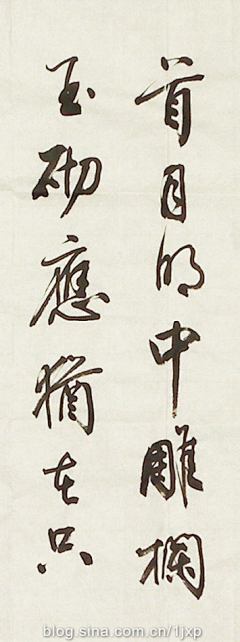 首月明中雕欄
玉砌應猶在只
blog.sina.com.cn/1jxp